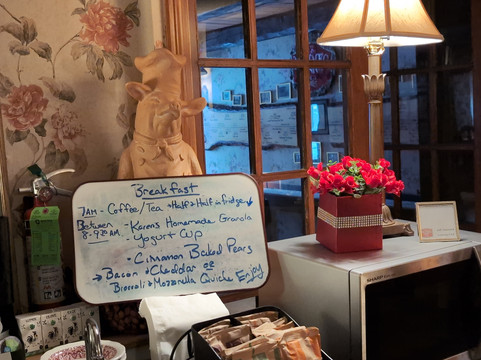 Breakfast
7AM - Coffee/Tea Half & Half in fridge
Between - Karens Homemade Granola
8-930AM. - Yogurt Cup
- Cinnamon Baked Pears
→ Bacon & Cheddar or
Broccoli & Mozzarella Quiche Enjoy
SHARP